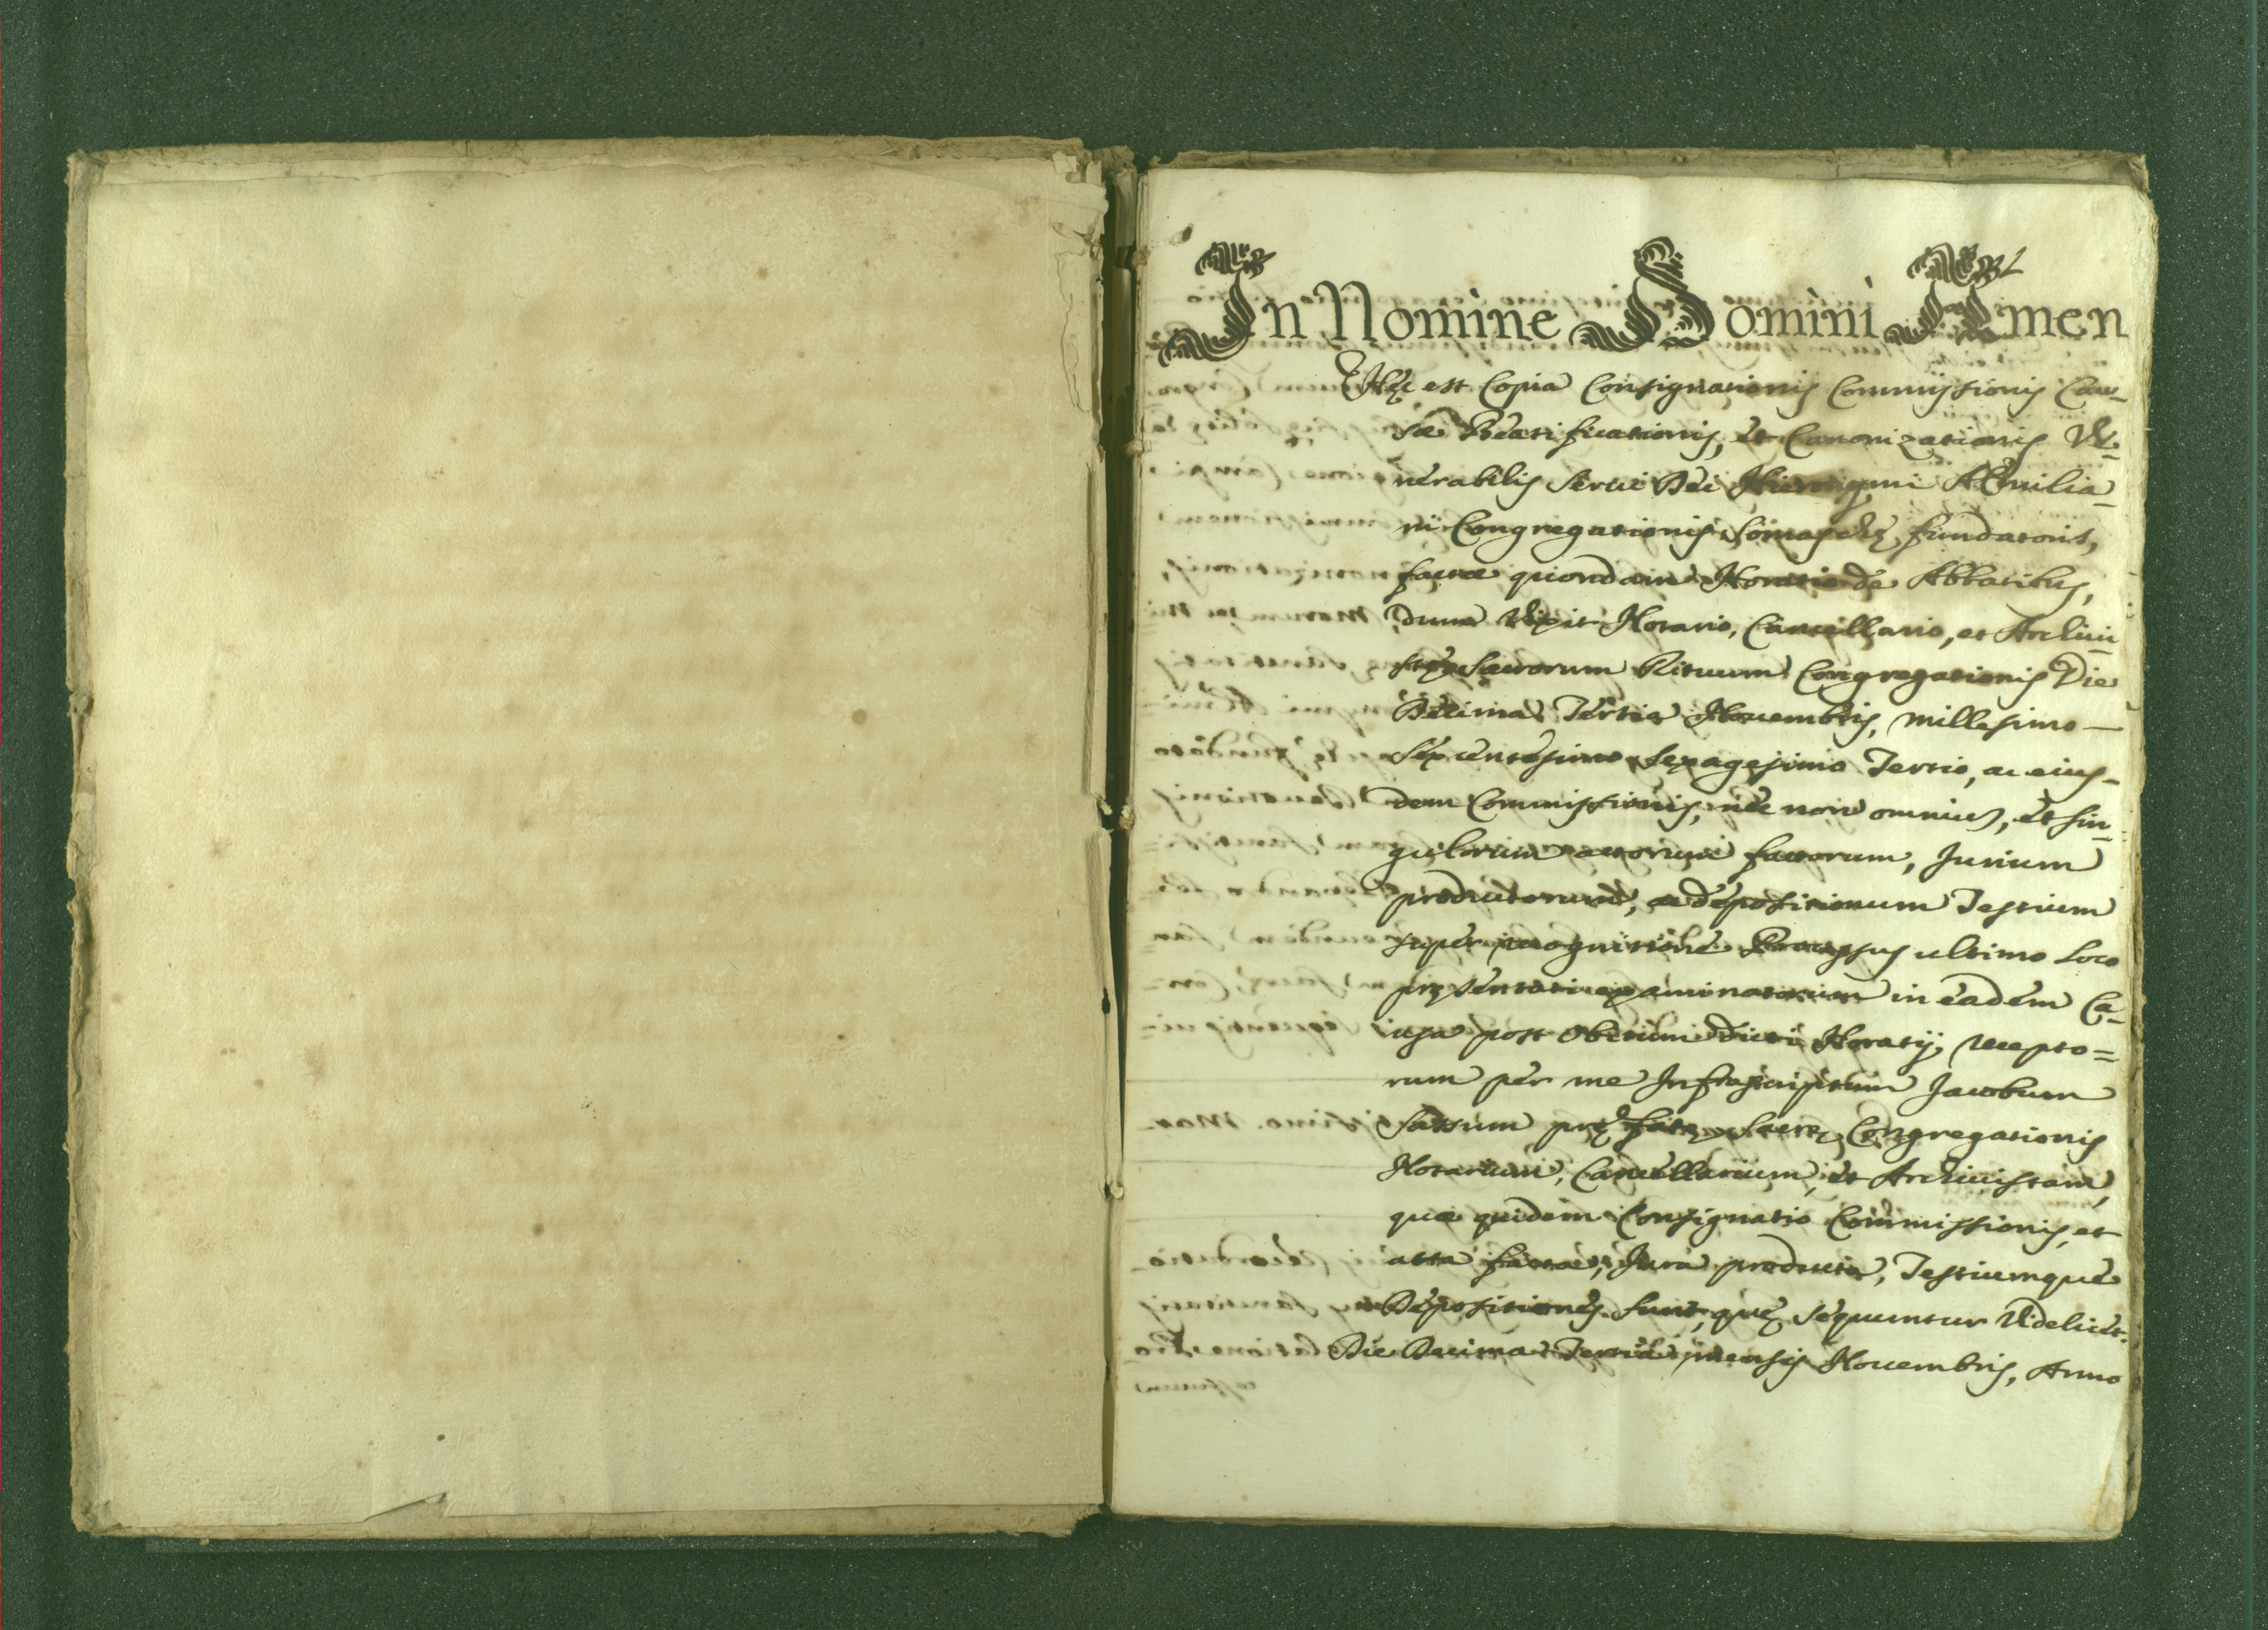 In Nomine Domini Amen
Hęc est Copia Consignationis Commissionis Cau_
sæ Beatificationis, et Canonizationis Ve_
nerabilis Serui Dei Hieronymi Æmilia_
ni Congregationis Somaschę fundatoris,
factæ quondam Horatio de Abbatibus,
dum vixit Notario, Cancellario, et Archiui_
stę Sacrorum Rituum Congregationis Die
Decima Tertia Nouembris, millesimo _
Sexcentesimo Sexagesimo Tertio, ac eius_
dem Commissionis, nec non omnium, et sin_
gulorum actorum factorum, Jurium
productorum, ac depositionum Testium
super recognitione Processus ultimo loco
pręsentati examinatorum in eadem Ca_
usa post obitum dicti Horatij, recepto=
rum per me Infrascriptum Jacobum
Sassum pręfatę Sacrę Congregationis
Notarium, Cancellarium, et Archiuistam,
quæ quidem Consignatio Commissionis, et
acta facta, Jura producta, Testiumque
Depositiones sunt, quę sequuntur Videlicet.
Die Decima Tertia mensis Nouembris, Anno